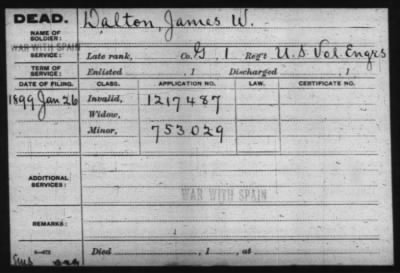 DEAD. Dalton, James W.
NAME OF SOLDIER:
WAR WITH SPAIN
SERVICE: Late rank, Co. G, 1 Reg't U.S. Vol Engrs
TERM OF SERVICE: Enlisted , 1 Discharged , 1
DATE OF FILING. CLASS. APPLICATION NO. LAW. CERTIFICATE NO.
1899 Jan 26 Invalid, 1217487
Widow,
Minor, 753029
ADDITIONAL SERVICES:
WAR WITH SPAIN
REMARKS:
Died , 1 , at